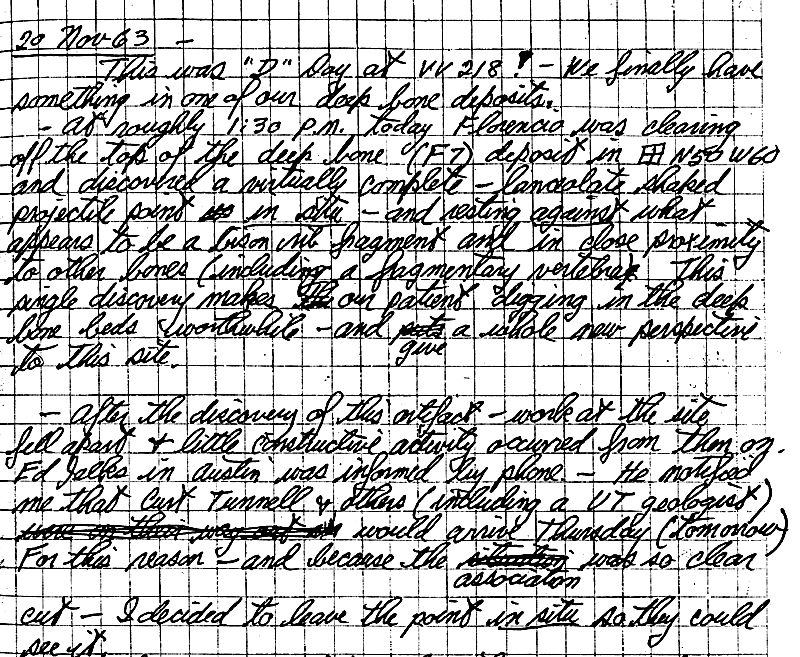 20 Nov 63 –
This was "D" Day at VV 218! – We finally have
something in one of our deep bone deposits.
– At roughly 1:30 P.M. today Florencio was clearing
off the top of the deep bone (F7) deposit in N50 W60
and discovered a virtually complete – lanceolate shaped
projectile point in situ – and resting against what
appears to be a bison rib fragment and in close proximity
to other bones (including a fragmentary vertebra). This
single discovery makes our patient digging in the deep
bone beds worthwhile – and give a whole new perspective
to this site.
– After the discovery of this artifact – work at the site
fell apart & little constructive activity occurred from then on.
Ed Jelks in Austin was informed by phone. – He notified
me that Curt Tunnell & others (including a UT geologist)
would arrive Thursday (tomorrow)
For this reason – and because the association was so clear
cut – I decided to leave the point in situ so they could
see it.